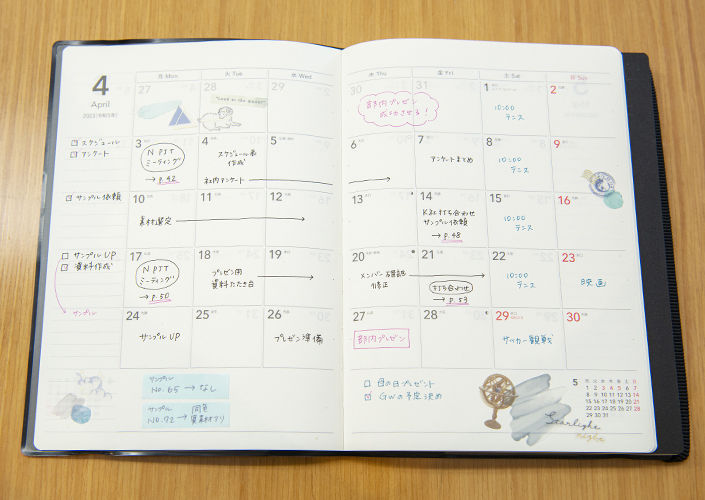 4
April
2023(令和5年)
月 Mon
火 Tue
水 Wed
木 Thu
金 Fri
土 Sat
日 Sun
27
28
29
30
31
1
2
部内プレゼン
成功させる!
10:00
テニス
スケジュール
アンケート
3
4
5
6
7
8
9
NPJT
ミーティング
→p.42
スケジュール表
作成
社内アンケート
アンケートまとめ
10:00
テニス
サンプル依頼
10
11
12
13
14
15
16
素材選定
K社打ち合わせ
サンプル依頼
→p.48
10:00
テニス
サンプルUP
資料作成
17
18
19
20
21
22
23
NPJT
ミーティング
→p.50
プレゼン用
資料たたき台
メンバー確認
修正
打ち合わせ
→p.53
10:00
テニス
映画
サンプル
24
25
26
27
28
29
30
サンプルUP
プレゼン準備
部内プレゼン
サッカー観戦
サンプル
NO.65→なし
サンプル
NO.72→同色
異素材アリ
母の日プレゼント
GWの予定決め
Starlight
night
5
月 火 水 木 金 土 日
1 2 3 4 5 6 7
8 9 10 11 12 13 14
15 16 17 18 19 20 21
22 23 24 25 26 27 28
29 30 31